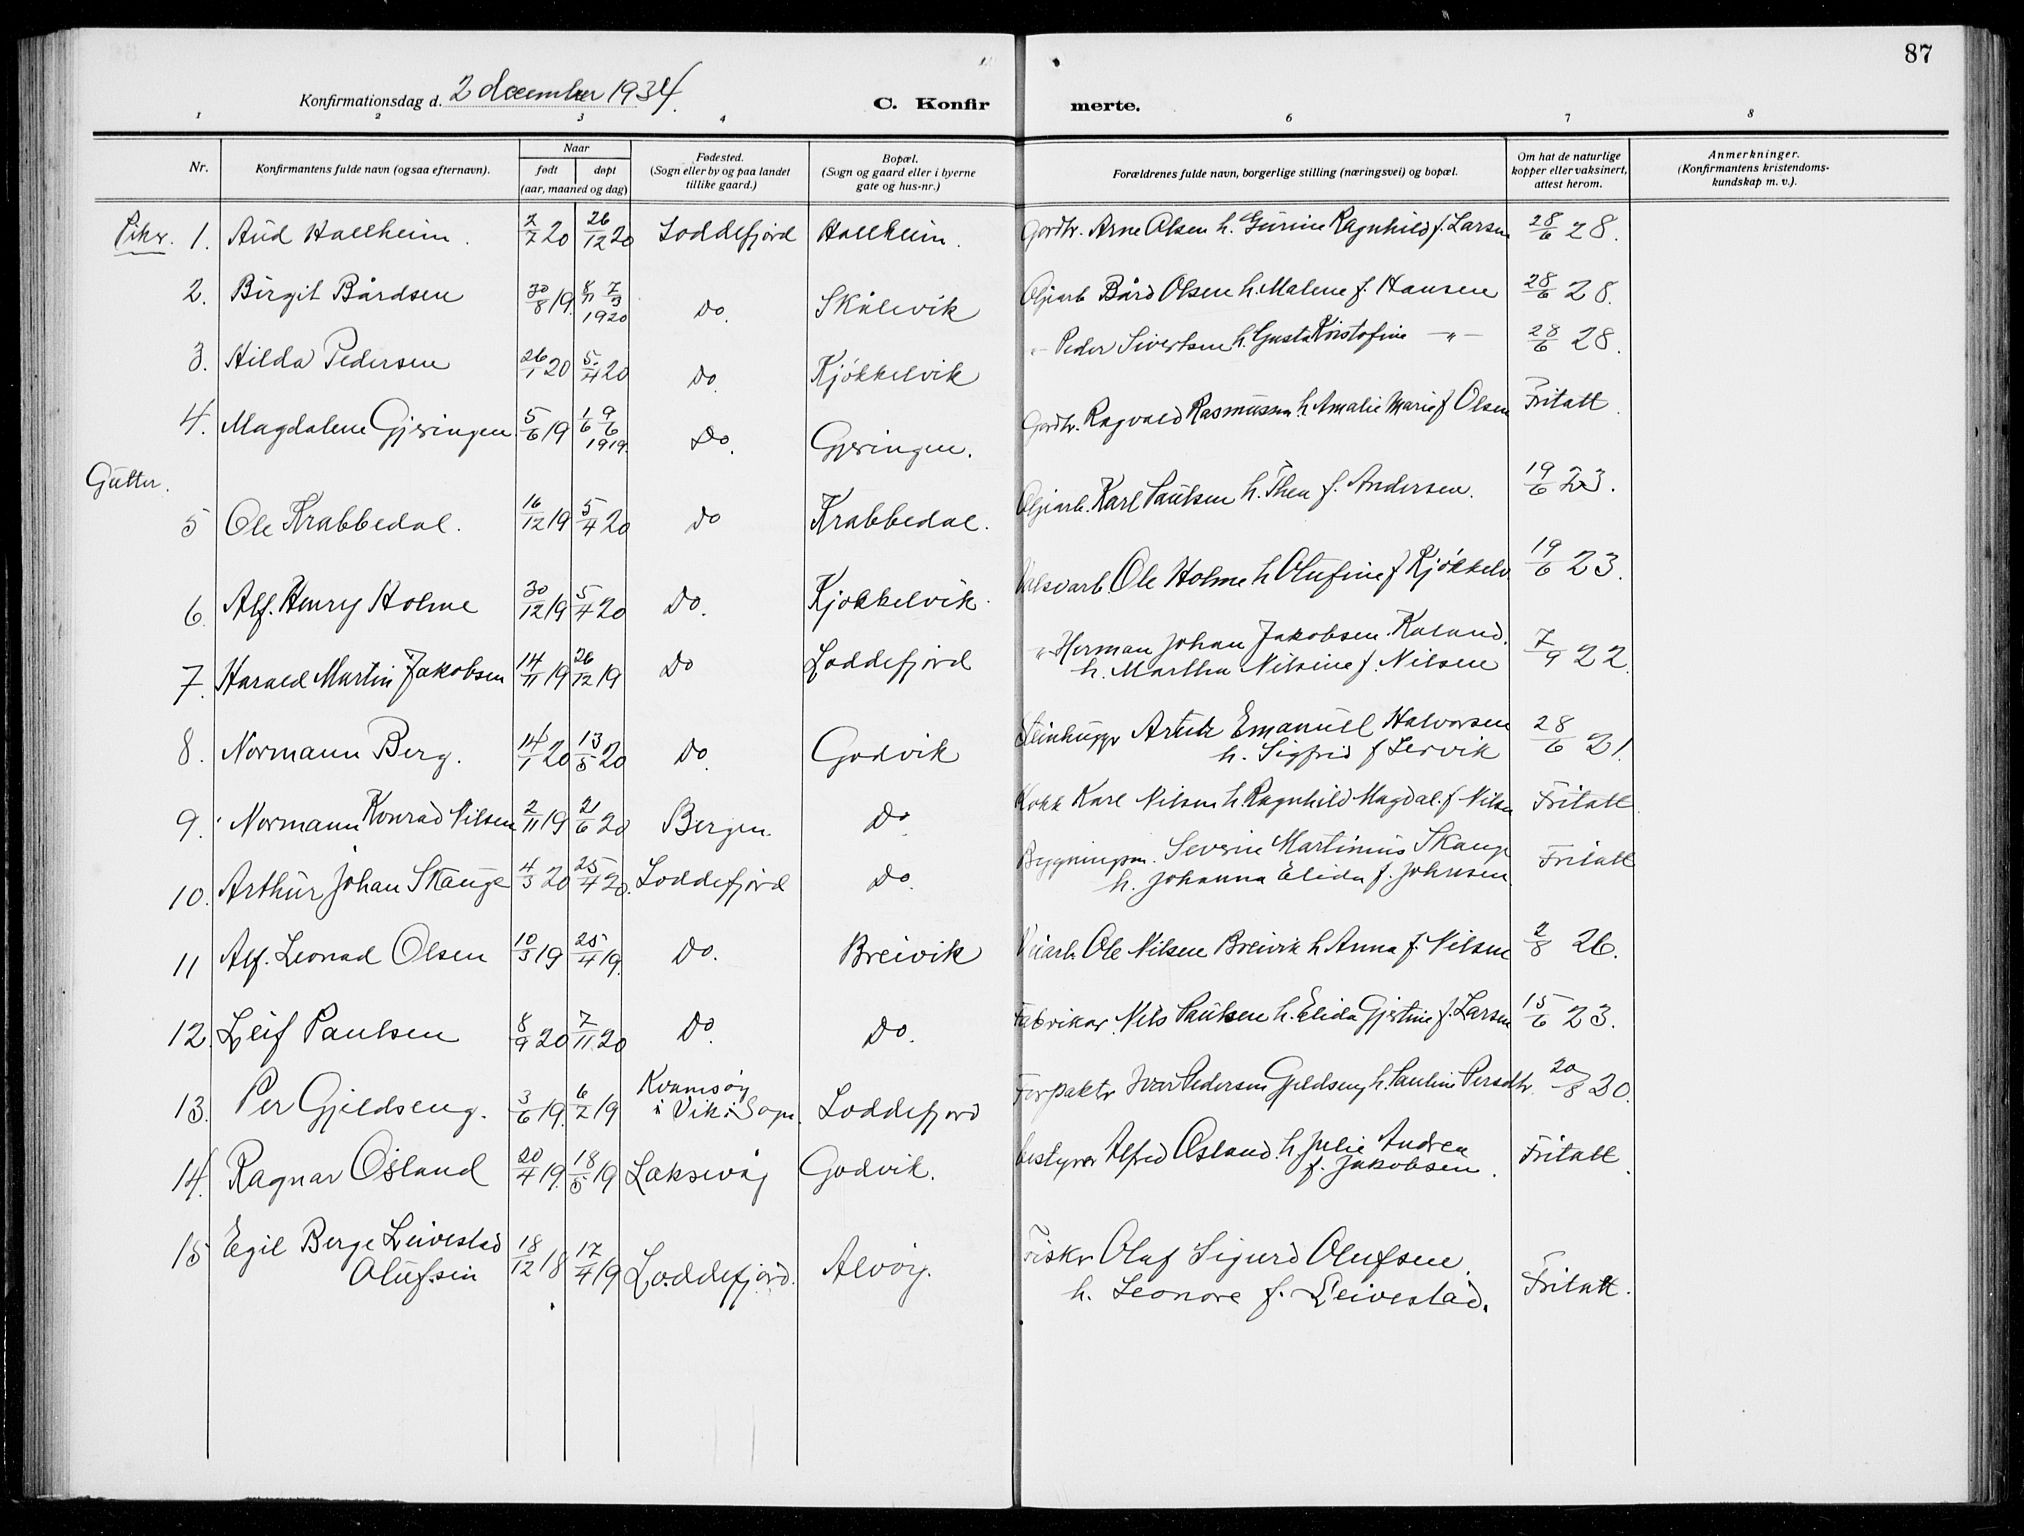 87
Konfirmationsdag d. 2 december 1934.
C. Konfirmerte.
1 2 3 4 6 7 8
Nr. Konfirmantens fulde navn (ogsaa efternavn). Naar født døpt (aar, maaned og dag) Fødested. (Sogn eller by og paa landet tillike gaard.) Bopæl. (Sogn og gaard eller i byerne gate og hus-nr.) Forældrenes fulde navn, borgerlige stilling (næringsvei) og bopæl. Om hat de naturlige kopper eller vaksinert, attest herom. Anmerkninger. (Konfirmantens kristendomskundskap m. v.).
Piker. 1. Aud Hallheim. 7/7 20 26/12 20 Loddefjord Hallheim. Gordbr. Arne Olsen h. Gurine Ragnhild f. Larsen 28/6 28.
2. Birgit Bårdsen 30/8 19. 8/11 7/3 1920 Do. Skålevik Oljearb Bård Olsen h. Malene f. Hansen 28/6 28.
3. Hilda Pedersen 26/1 20 5/4 20 Do. Kjøkkelvik "- Peder Sivertsen h. Gusta Kristofine -"- 28/6 28.
4. Magdalene Gjeringen 5/6 19 1/6 9/6 1919. Do. Gjeringen. Gordbr. Ragvald Rasmussen h Amalie Marie f Olsen Fritatt.
Gutter.
5 Ole Krabbedal. 16/12 19 5/4 20 Do Krabbedal. Oljearb. Karl Paulsen h. Thea f. Andersen. 19/6 23.
6. Alf. Henry Holme 30/12 19 5/4 20 Do. Kjøkkelvik. Ole Holme h Olufine f Kjøkkelv 19/6 23.
7. Harald Martin Jakobsen 14/11 19 26/12 19 Do Loddefjord " Herman Johan Jakobsen Kaland.
h. Martha Nilsine f. Nilsen 7/9 22.
8. Normann Berg. 14/1 20 13/5 20 Do. Godvik Steinhugger Emanuel Halvorsen
h. Sigfrid f Lervik 28/6 21.
9. Normann Konrad Nilsen 2/11 19 21/6 20 Bergen. Do. Kokk Karl Nilsen h. Ragnhild Magdal. f Nilsen Fritatt.
10. Arthur Johan Skauge 4/3 20 25/4 20. Loddefjord Do. Bygningsm. Severin Martinius Skauge
h. Johanna Elida f. Johnsen. Fritatt
11 Alf. Leonad Olsen 10/3 19 25/4 19. Do. Breivik Veiarb. Ole Nilsen Breivik h Anna f. Nilsen 2/8 26.
12. Leif Paulsen 8/9 20 7/11 20 Do. Do. Fabrikar. Nils Paulsen h. Elida Gjertine f. Larsen 15/6 23.
13. Per Gjeldseng. 3/6 19. 6/7 19 Kvamsøy
i Vik i Sogn. Loddefjord Forpaktr Ivar Pedersen Gjeldseng h. Pauline Persdtr. 20/8 20.
14. Ragnar Øsland 20/4 19. 18/5 19 Laksevåg Godvik. bestyrer Alfred Øsland h Julie Andrea
f. Jakobsen. Fritatt.
15 Egil Berge Leivestad
Olufsen 18/12 18 17/4 19 Loddefjord. Alvøy. Fisker Olaf Sigurd Olufsen.
h. Leonore f. Leivestad. Fritatt.